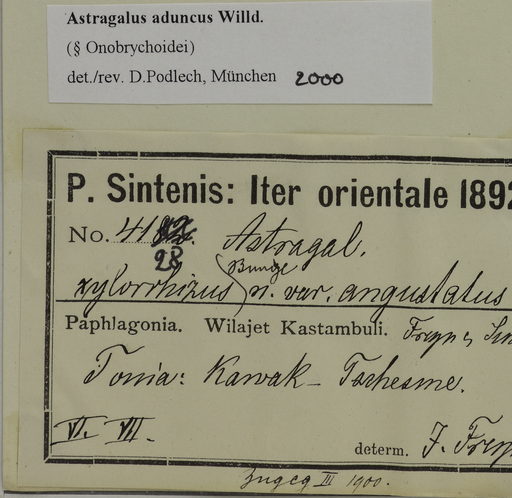 Astragalus aduncus Willd.
(§ Onobrychoidei)
det./rev. D.Podlech, München 2000
P. Sintenis: Iter orientale 1892
No. 41
28
Astragal.
Bunge
xylorrhizus n. var. angustatus
Paphlagonia. Wilajet Kastambuli. Freyn
Tonia: Kawak - Tschesme.
VI. VII.
determ. J. Frey
III 1900.